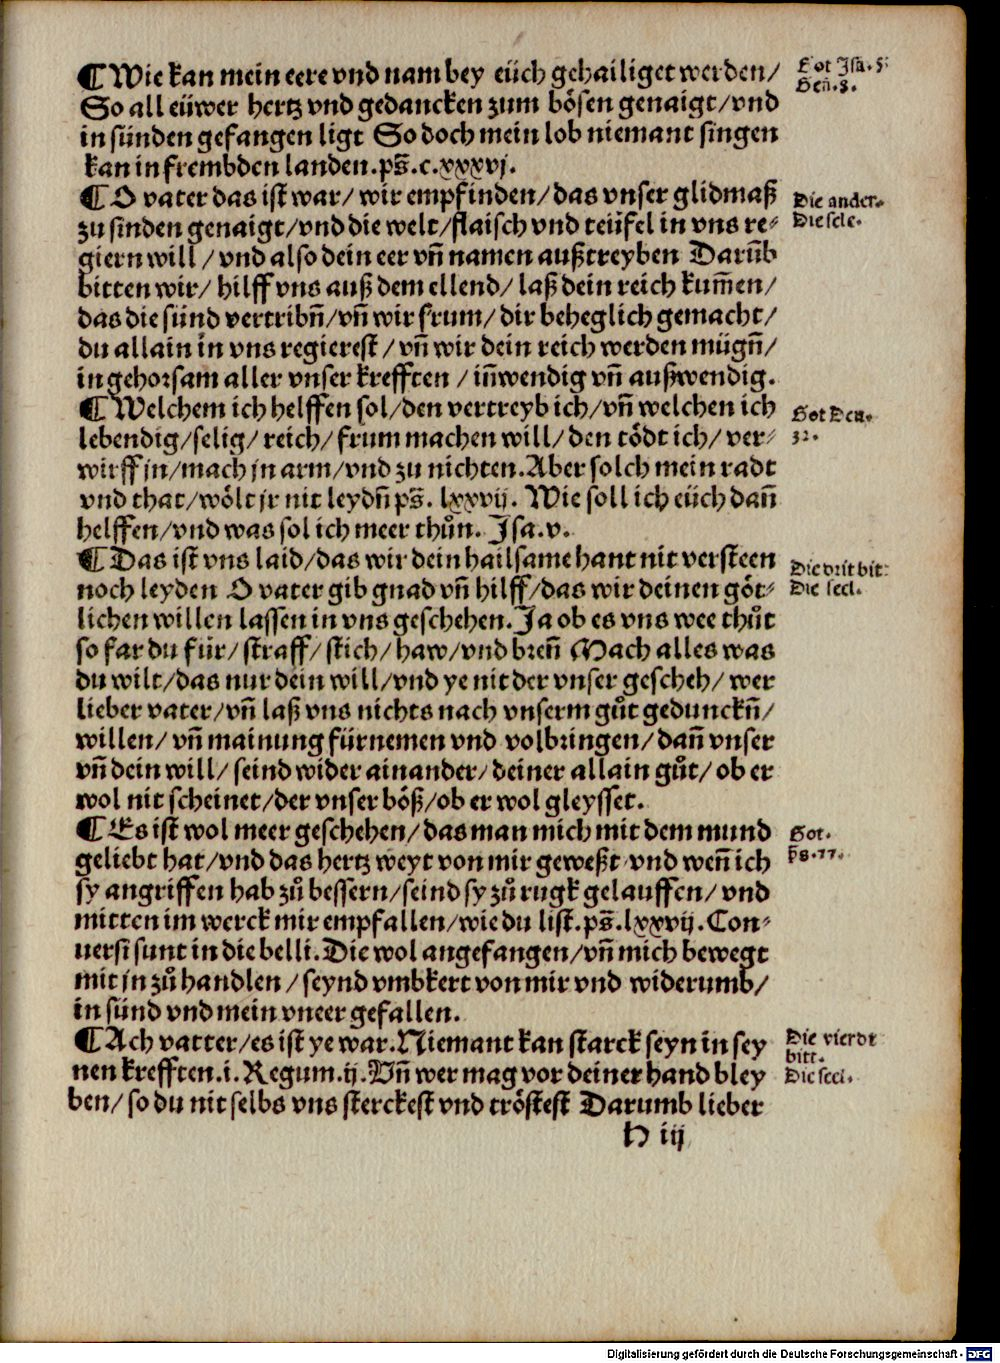 ¶ Wie kan mein eere vnd nam bey eüch gehailiget werden/
So all eüwer hertz vnd gedancken zum bösen genaigt/vnd
in sünden gefangen ligt So doch mein lob niemant singen
kan in frembden landen.ps̄.c.xxxvj.
Got Jsa.5:
Gen̄.8.
¶ O vater das ist war/ wir empfinden/das vnser glidmaß
zu sinden genaigt/vnd die welt/flaisch vnd teüfel in vns re⸗
giern will / vnd also dein eer vn̄ namen außtreyben Darūb
bitten wir/ hilff vns auß dem ellend/ laß dein reich kum̄en/
das die sünd vertribn̄/vn̄ wir frum/ dir beheglich gemacht/
du allain in vns regierest / vn̄ wir dein reich werden mügn̄/
in gehorsam aller vnser krefften / in̄wendig vn̄ außwendig.
Die ander.
Die sele.
¶ Welchem ich helffen sol/den vertreyb ich/vn̄ welchen ich
lebendig/selig/ reich/ frum machen will/ den tödt ich/ ver⸗
wirff jn/mach jn arm/vnd zu nichten.Aber solch mein radt
vnd that/wölt jr nit leydn̄ ps̄. lxxvij. Wie soll ich eüch dan̄
helffen/vnd was sol ich meer thůn. Jsa.v.
Got Deu.
32.
¶ Das ist vns laid/das wir dein hailsame hant nit versteen
noch leyden O vater gib gnad vn̄ hilff/das wir deinen göt⸗
lichen willen lassen in vns geschehen.Ja ob es vns wee thůt
so far du für/ straff/ stich/ haw/vnd bren̄ Mach alles was
du wilt/das nur dein will/vnd ye nit der vnser gescheh/ wer
lieber vater/vn̄ laß vns nichts nach vnserm gůt gedunckn̄/
willen/ vn̄ mainung fürnemen vnd volbringen/ dan̄ vnser
vn̄ dein will/ seind wider ainander/deiner allain gůt/ ob er
wol nit scheinet/der vnser böß/ob er wol gleysset.
Die drit bit:
Die seel.
¶ Es ist wol meer geschehen/das man mich mit dem mund
geliebt hat/vnd das hertz weyt von mir geweßt/vnd wen̄ ich
sy angriffen hab zů bessern/seind sy zů rugk gelauffen/ vnd
mitten im werck mir empfallen/wie du list.ps̄.lxxvij.Con⸗
uersi sunt in die belli.Die wol angefangen/vn̄ mich bewegt
mit jn zů handlen /seynd vmbkert von mir vnd widerumb/
in sünd vnd mein vneer gefallen.
Got.
p̄s.77.
¶ Ach vatter/es ist ye war.Niemant kan starck seyn in sey
nen krefften.i.Regum.ij.Vn̄ wer mag vor deiner hand bley
ben/ so du nit selbs vns sterckest vnd tröstest Darumb lieber
Die vierdt
bitt.
Die seel.
H iij
Digitalisierung gefördert durch die Deutsche Forschungsgemeinschaft - DFG